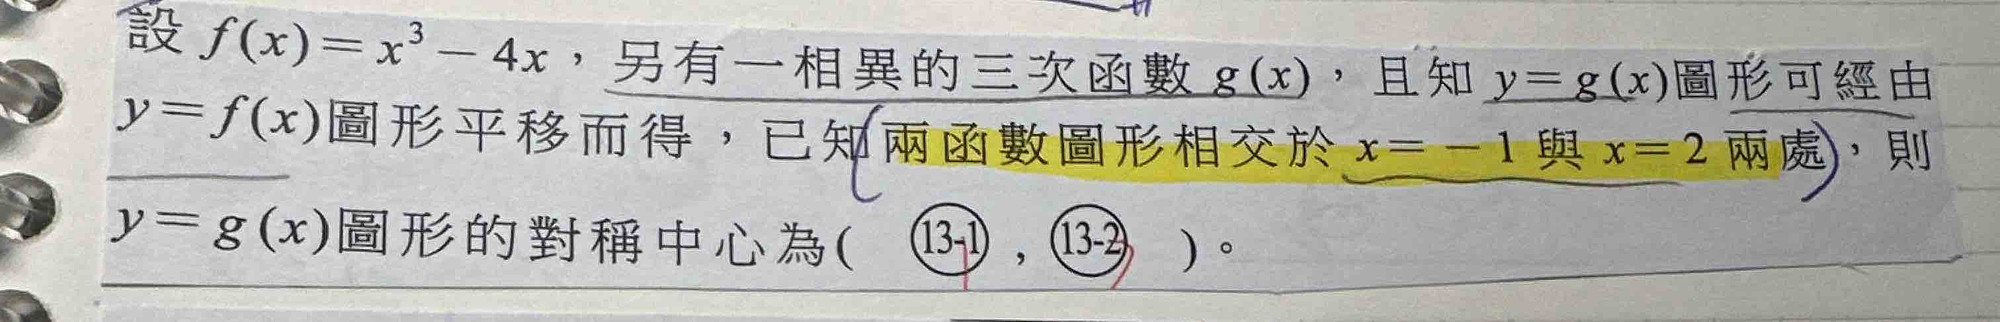 設 f(x)=x³－4x，另有一相異的三次函數 g(x)，且知 y=g(x)圖形可經由
y=f(x)圖形平移而得，已知兩函數圖形相交於 x=－1 與 x=2 兩處，則
y=g(x)圖形的對稱中心為( 13-1 , 13-2 )。